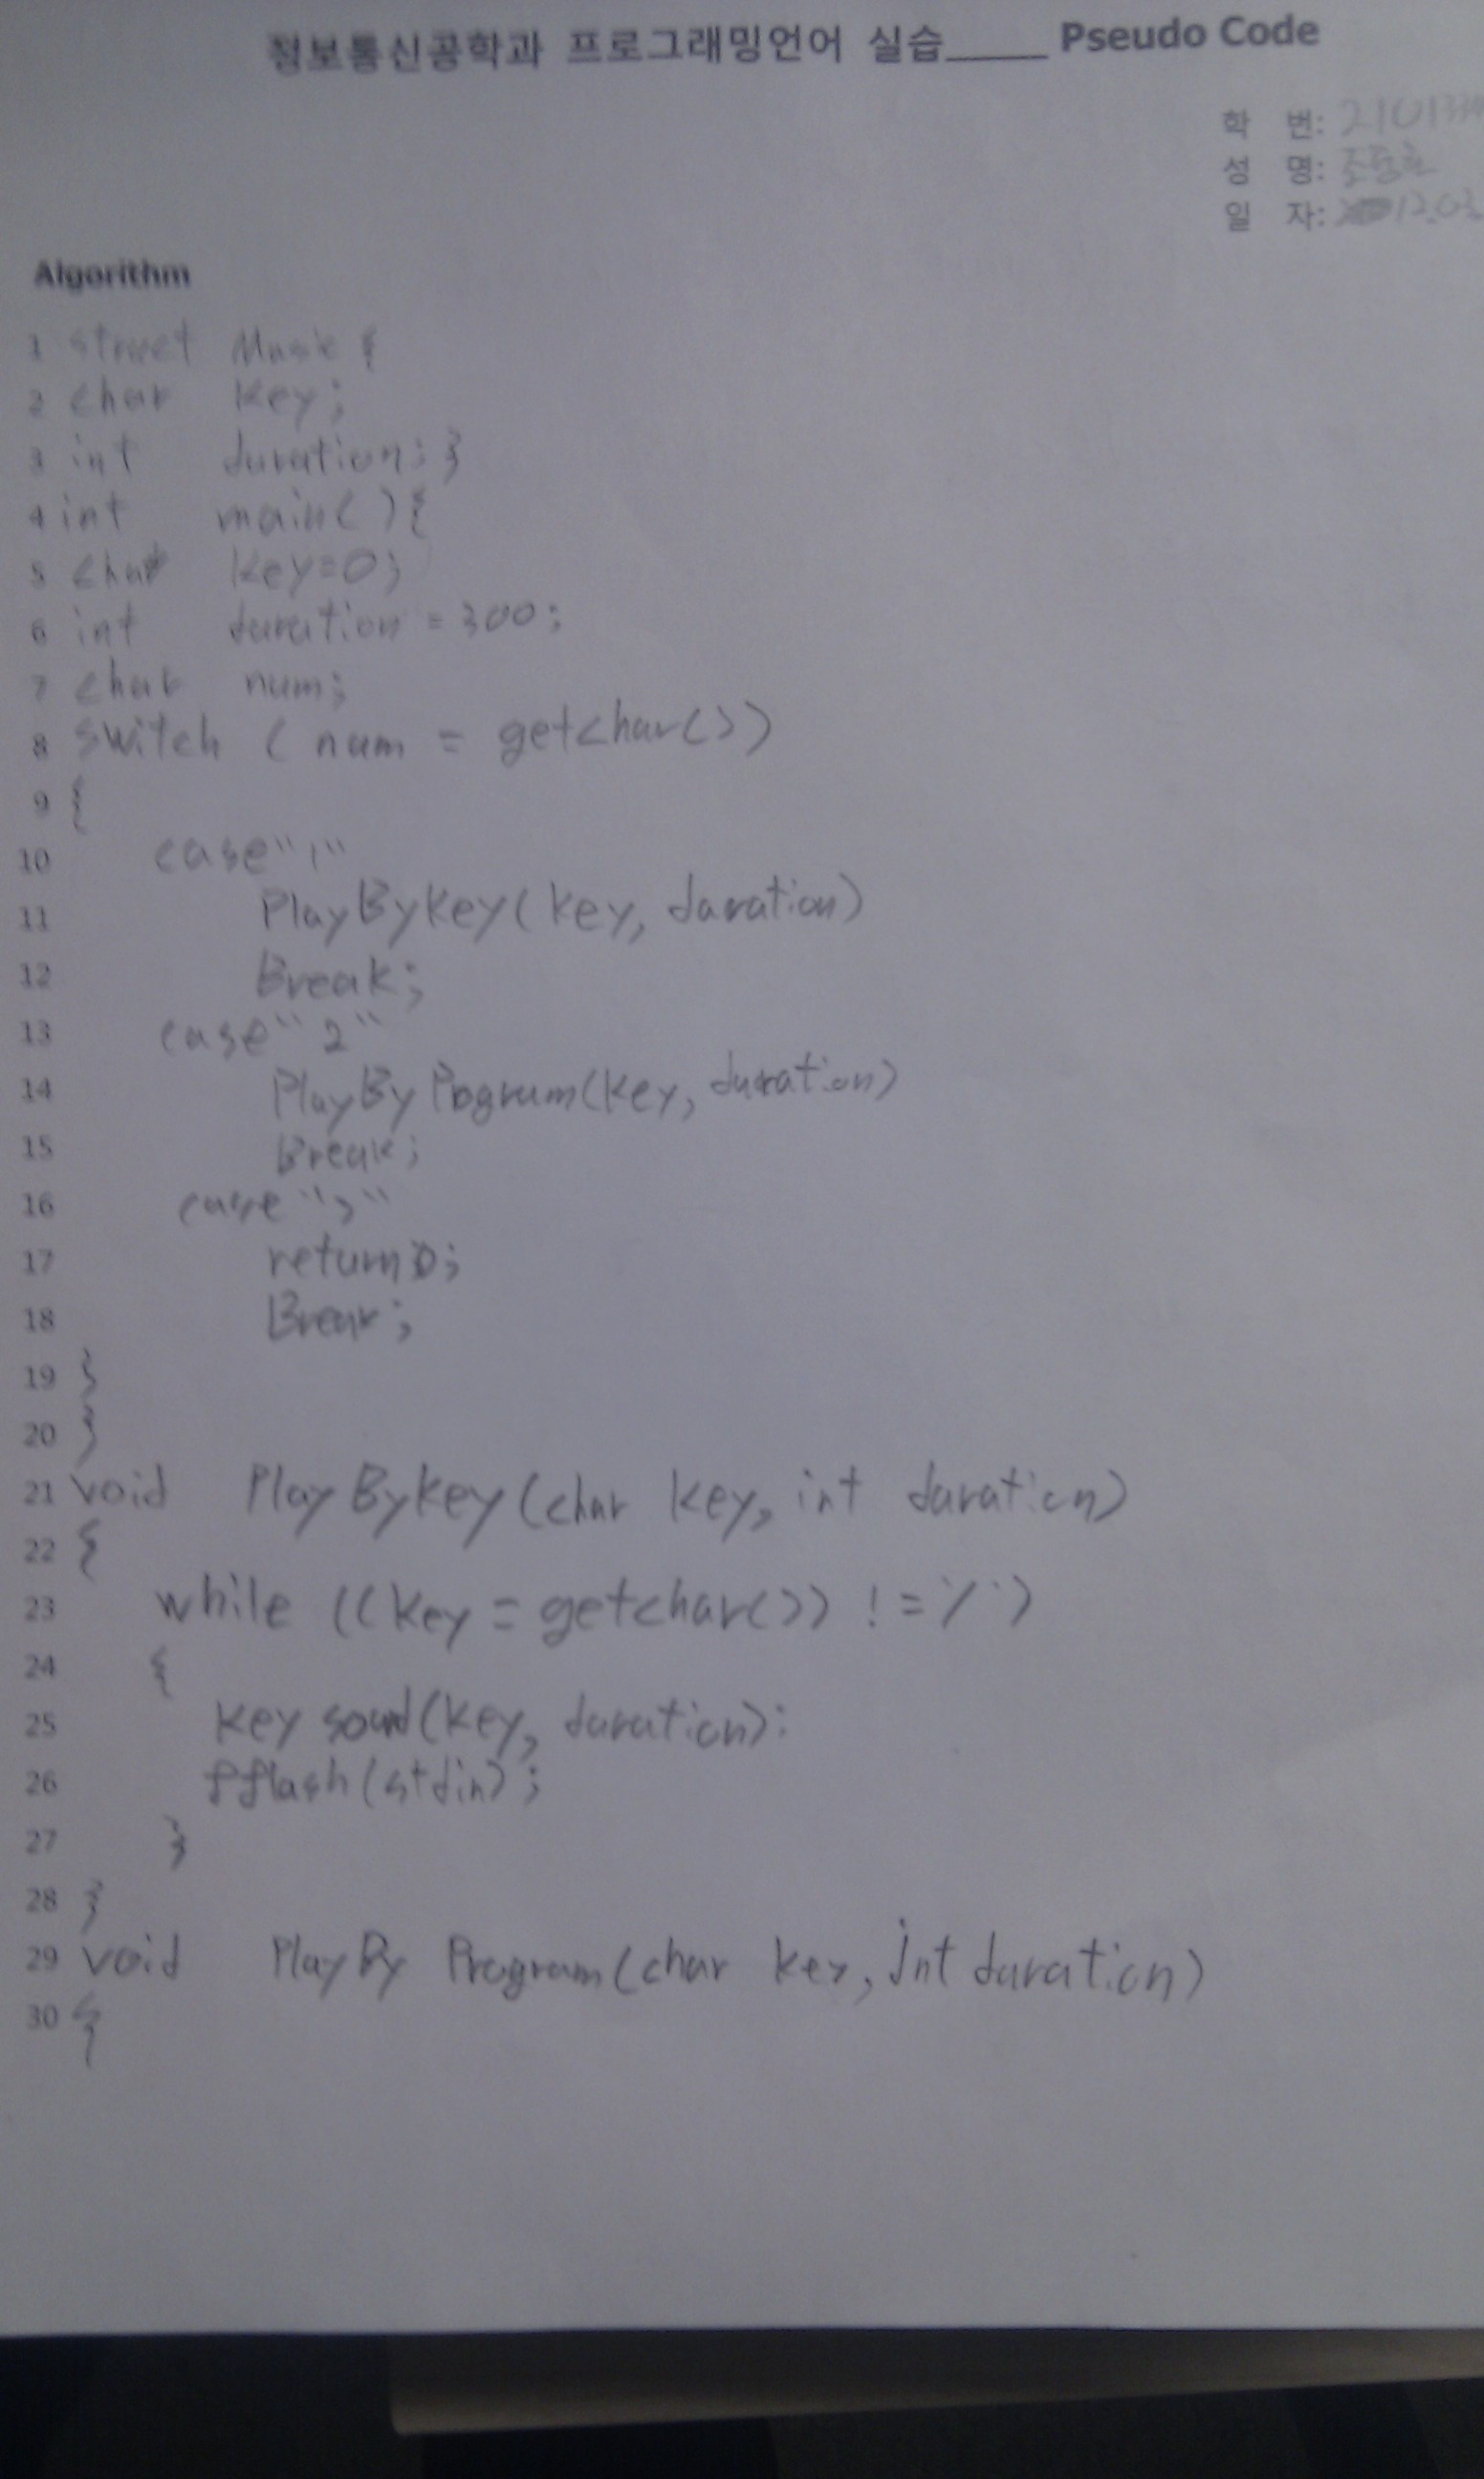 정보통신공학과 프로그래밍언어 실습_____ Pseudo Code
학 번: 2101334
성 명:
일 자: 12.03
Algorithm
1 struct Music {
2 char key;
3 int duration; }
4 int main() {
5 char key=0;
6 int duration = 300;
7 char num;
8 switch ( num = getchar())
9 {
10 case "1"
11 PlayBykey(key, duration)
12 Break;
13 case "2"
14 PlayBy Program(key, duration)
15 Break;
16 case "3"
17 return 0;
18 Break;
19 }
20 }
21 void Play Bykey(char key, int duration)
22 {
23 while ((key = getchar()) != '/')
24 {
25 key sound(key, duration):
26 fflash(stdin);
27 }
28 }
29 void PlayBy Program(char key, int duration)
30 {